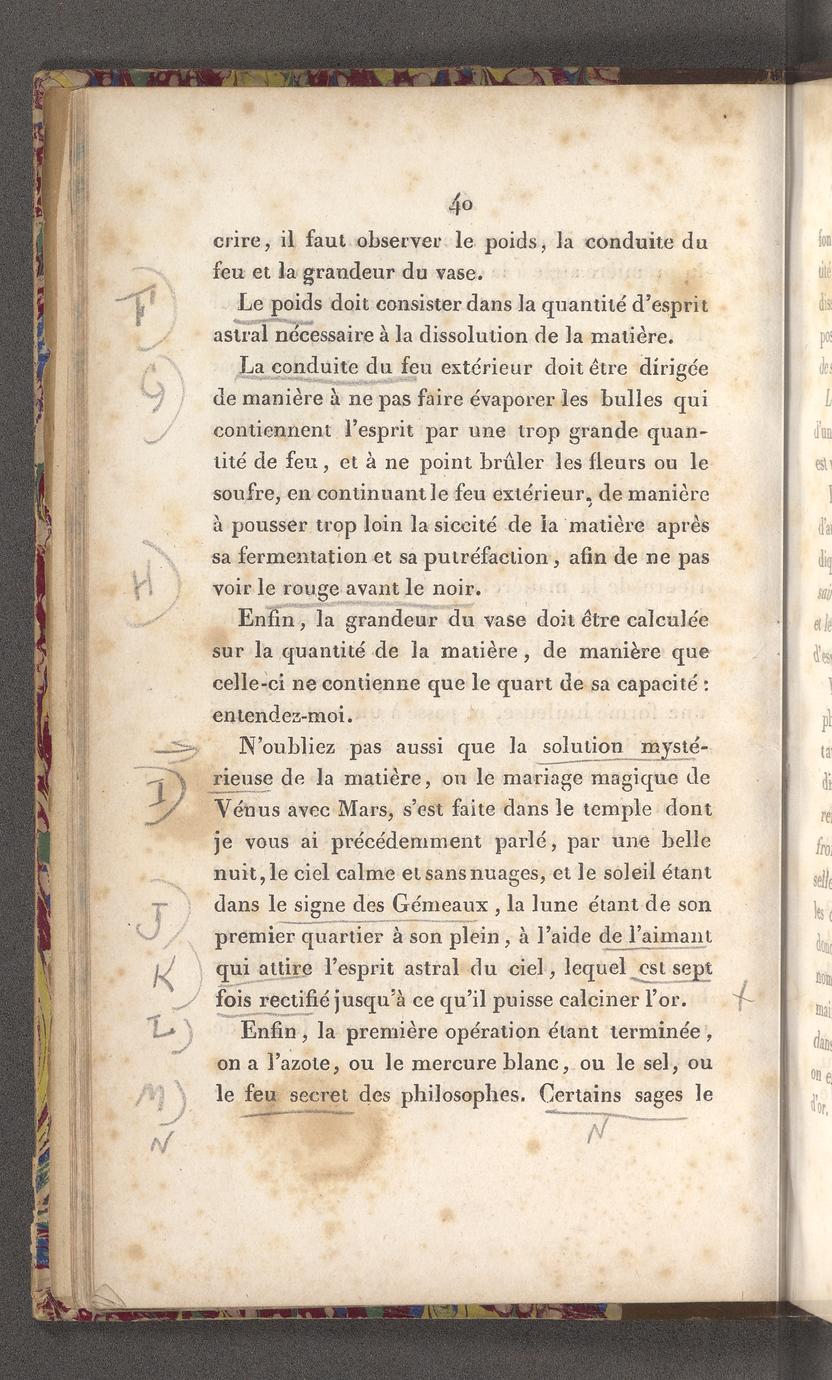 40
crire, il faut observer le poids, la conduite du
feu et la grandeur du vase.
F)
Le poids doit consister dans la quantité d'esprit
astral nécessaire à la dissolution de la matière.
G)
La conduite du feu extérieur doit être dirigée
de manière à ne pas faire évaporer les bulles qui
contiennent l'esprit par une trop grande quan-
tité de feu, et à ne point brûler les fleurs ou le
soufre, en continuant le feu extérieur, de manière
à pousser trop loin la siccité de la matière après
sa fermentation et sa putréfaction, afin de ne pas
H)
voir le rouge avant le noir.
Enfin, la grandeur du vase doit être calculée
sur la quantité de la matière, de manière que
celle-ci ne contienne que le quart de sa capacité :
entendez-moi.
N'oubliez pas aussi que la solution mysté-
I)
rieuse de la matière, ou le mariage magique de
Vénus avec Mars, s'est faite dans le temple dont
je vous ai précédemment parlé, par une belle
nuit, le ciel calme et sans nuages, et le soleil étant
J)
dans le signe des Gémeaux, la lune étant de son
premier quartier à son plein, à l'aide de l'aimant
K)
qui attire l'esprit astral du ciel, lequel est sept
fois rectifié jusqu'à ce qu'il puisse calciner l'or.
L)
Enfin, la première opération étant terminée,
on a l'azote, ou le mercure blanc, ou le sel, ou
M)
le feu secret des philosophes. Certains sages le
N
N